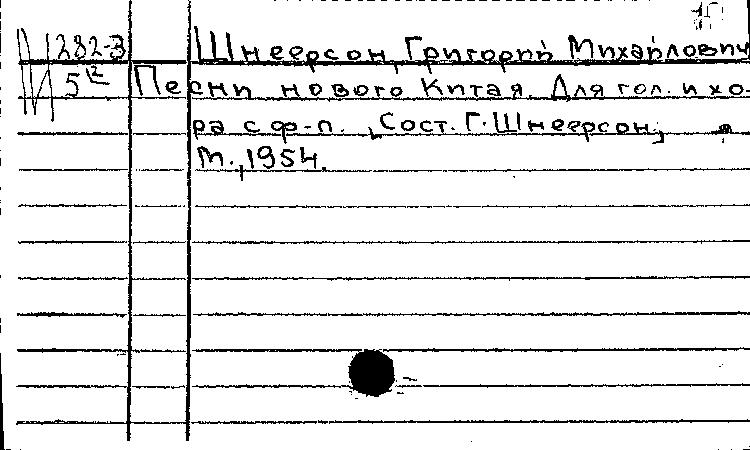 282-3 Шнеерсон, Григорий Михайлович
5 12 Песни нового Китая. Для гол. и хо-
ра с ф-п. Сост. Г. Шнеерсон,
М., 1954.